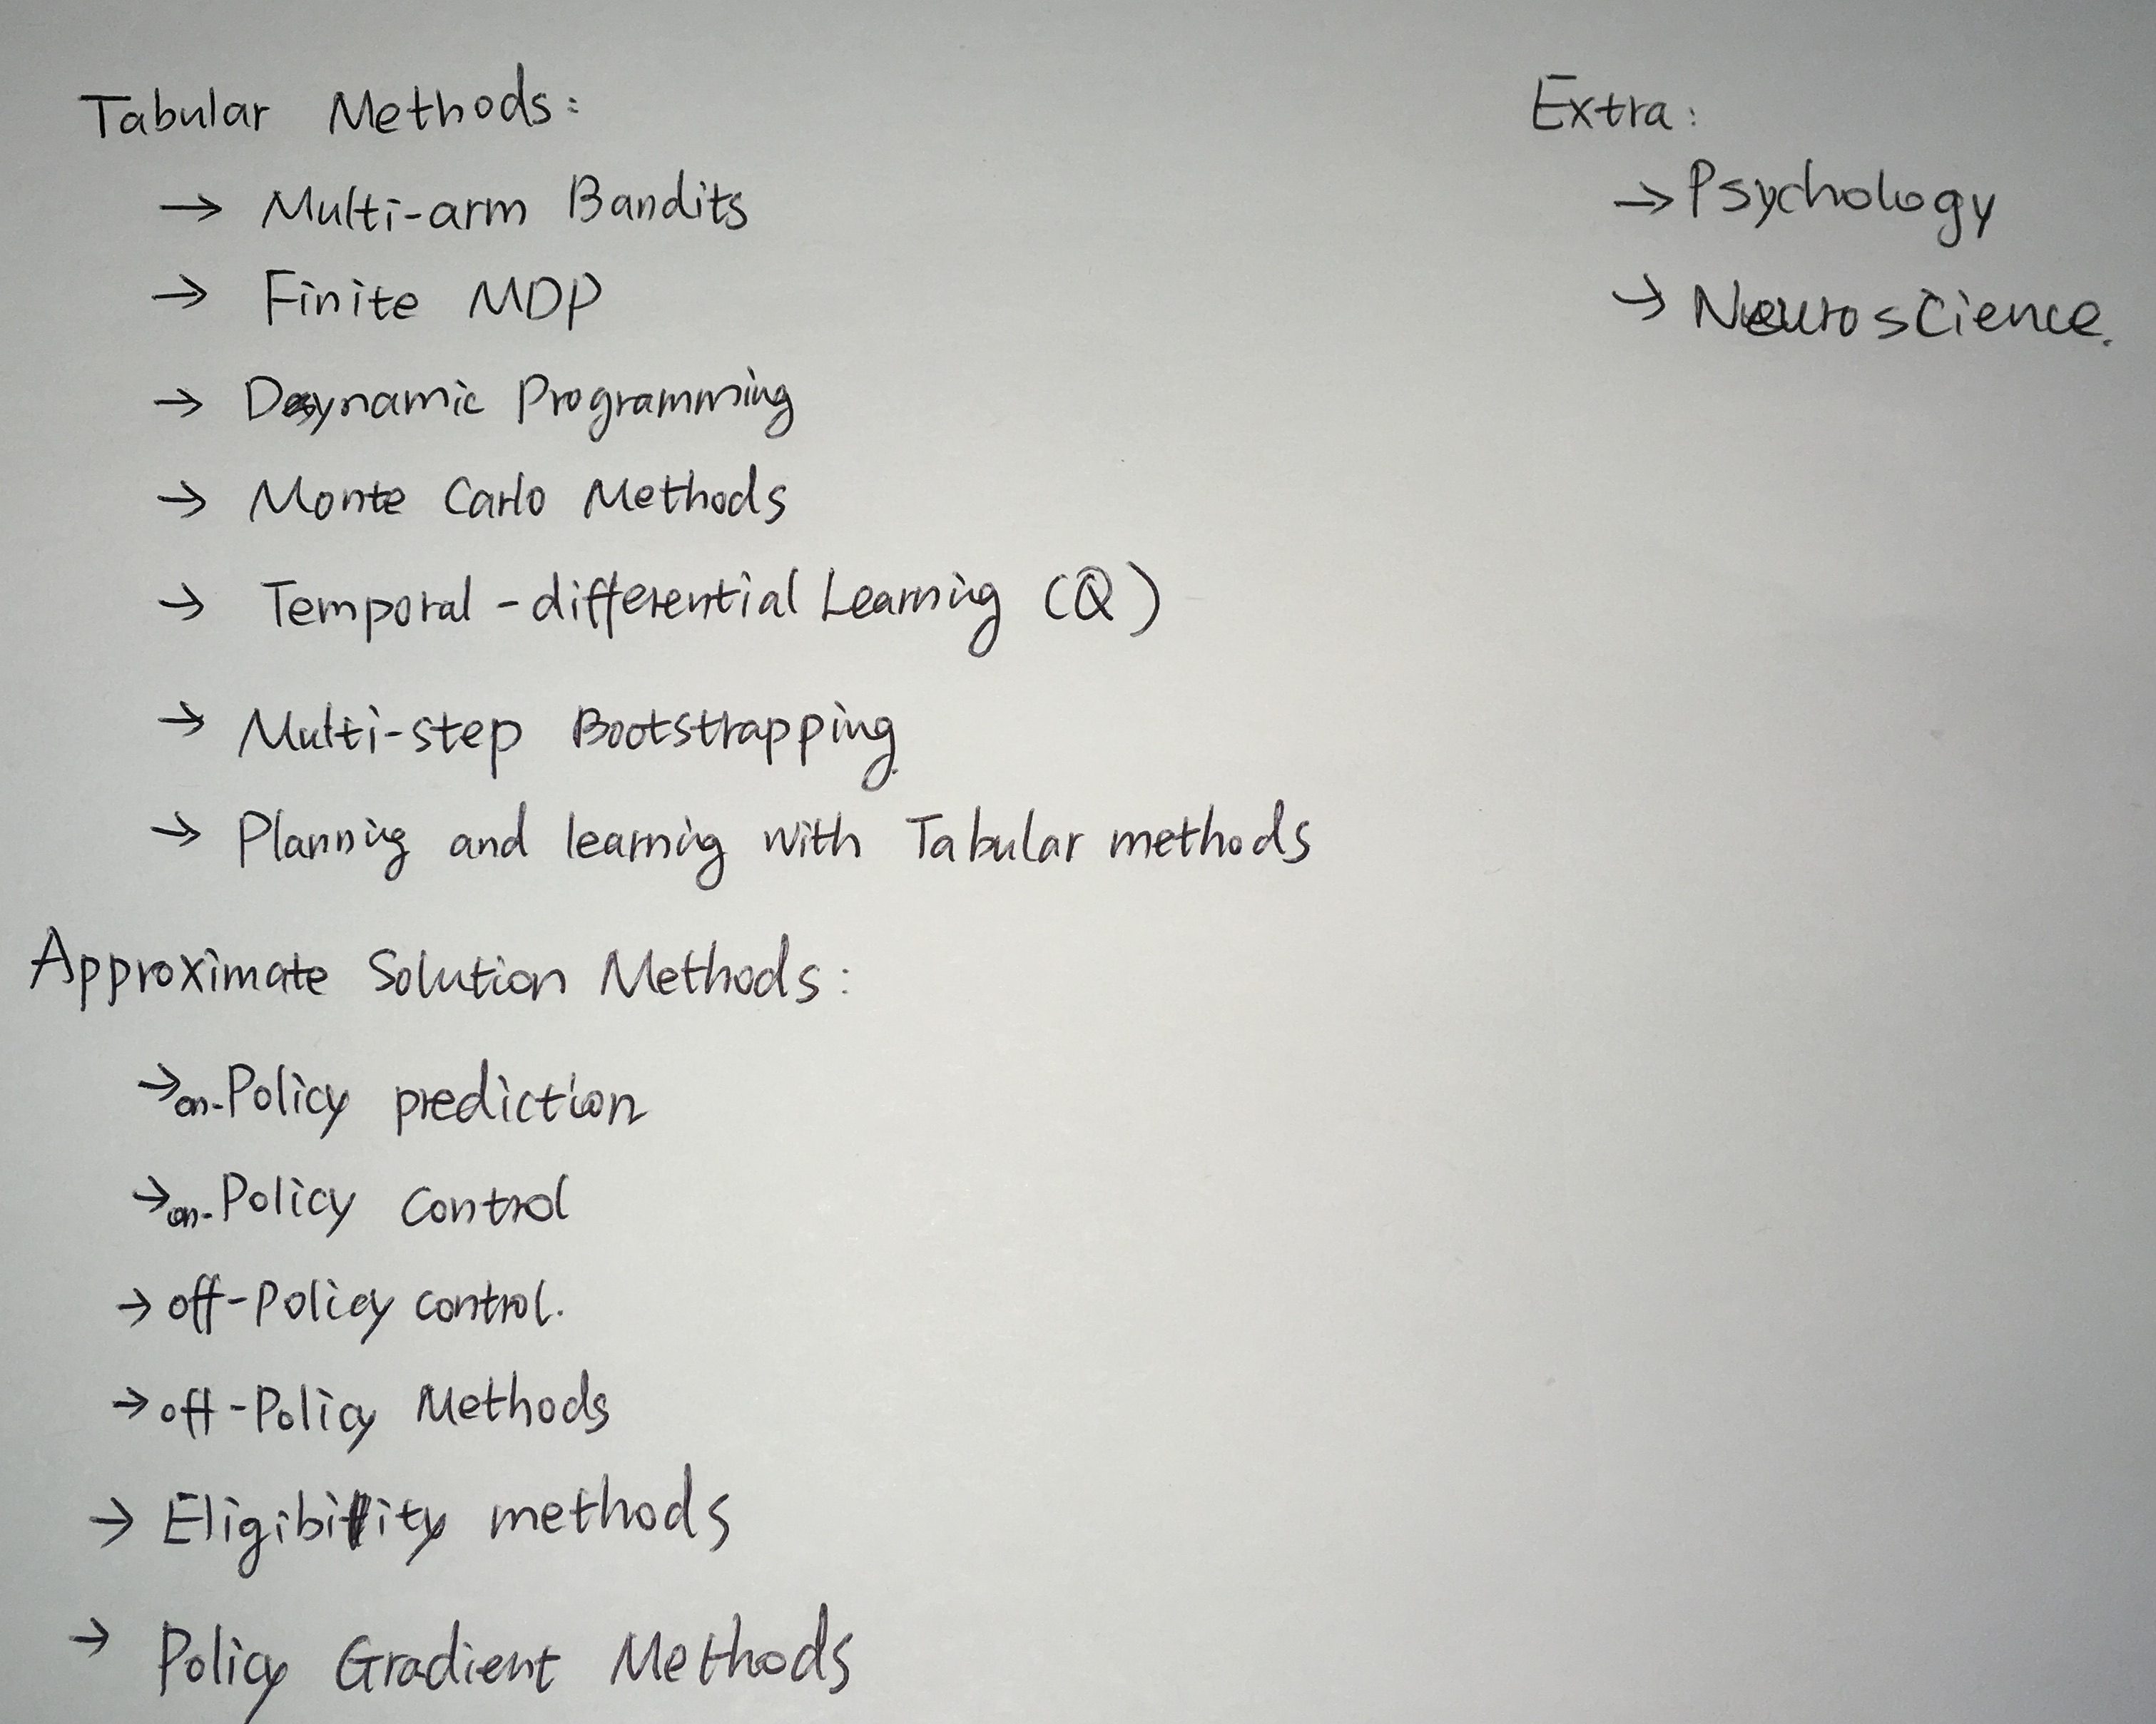 Tabular Methods:
→ Multi-arm Bandits
→ Finite MDP
→ Dynamic Programming
→ Monte Carlo Methods
→ Temporal-differential Learning (Q)
→ Multi-step Bootstrapping
→ Planning and learning with Tabular methods
Approximate Solution Methods:
→ on-Policy prediction
→ on-Policy control
→ off-Policy control.
→ off-Policy Methods
→ Eligibility methods
→ Policy Gradient Methods
Extra:
→ Psychology
→ Neuroscience.